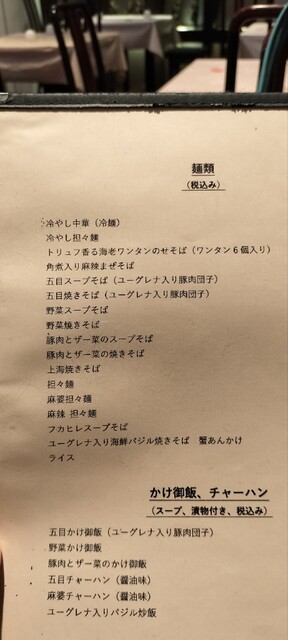 麺類
（税込み）
冷やし中華（冷麺）
冷やし担々麺
トリュフ香る海老ワンタンのせそば（ワンタン６個入り）
角煮入り麻辣まぜそば
五目スープそば（ユーグレナ入り豚肉団子）
五目焼きそば（ユーグレナ入り豚肉団子）
野菜スープそば
野菜焼きそば
豚肉とザー菜のスープそば
豚肉とザー菜の焼きそば
上海焼きそば
担々麺
麻婆担々麺
麻辣 担々麺
フカヒレスープそば
ユーグレナ入り海鮮バジル焼きそば　蟹あんかけ
ライス
かけ御飯、チャーハン
（スープ、漬物付き、税込み）
五目かけ御飯（ユーグレナ入り豚肉団子）
野菜かけ御飯
豚肉とザー菜のかけ御飯
五目チャーハン（醤油味）
麻婆チャーハン（醤油味）
ユーグレナ入りバジル炒飯